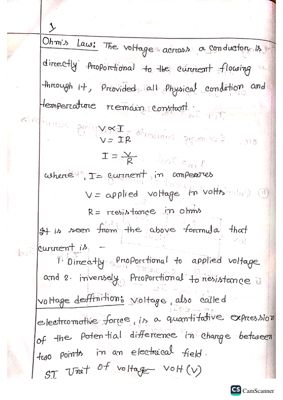 1
Ohm's Law: The voltage across a conductor is
directly proportional to the current flowing
through it, provided all physical condition and
temperature remain constant.
V∝I
V = IR
I = V/R
where, I = current in amperes
V = applied voltage in volts
R = resistance in ohms
It is seen from the above formula that
current is -
1. Directly proportional to applied voltage
and 2. inversely proportional to resistance
voltage deffinition: voltage, also called
electromotive force, is a quantitative expression
of the potential difference in change between
two points in an electrical field.
SI Unit of voltage volt (V)
CS CamScanner